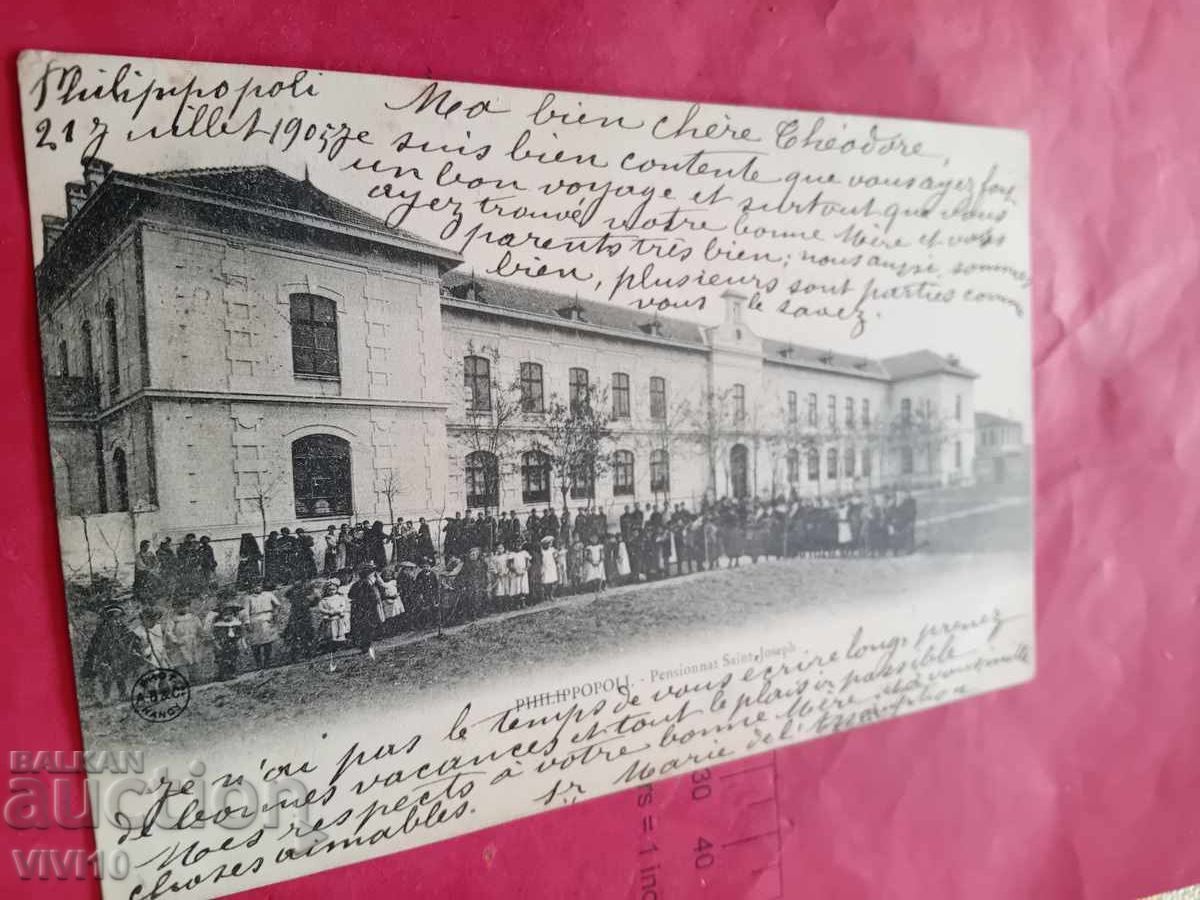 Philippopoli
21 Juillet 1905
Ma bien chère Théodore,
Je suis bien contente que vous ayez fait
un bon voyage et surtout que vous
ayez trouvé votre bonne Mère et vos
parents très bien; nous aussi, sommes
bien, plusieurs sont parties comme
vous le savez.
PHILIPPOPOLI. - Pensionnat Saint Joseph
Je n'ai pas le temps de vous écrire long, prenez
de bonnes vacances et tout le plaisir possible
Mes respects à votre bonne Mère
choses aimables. Sr Marie de l'Assomption
BALKAN
auction
VIVI10
rs = 1 inc
30 40